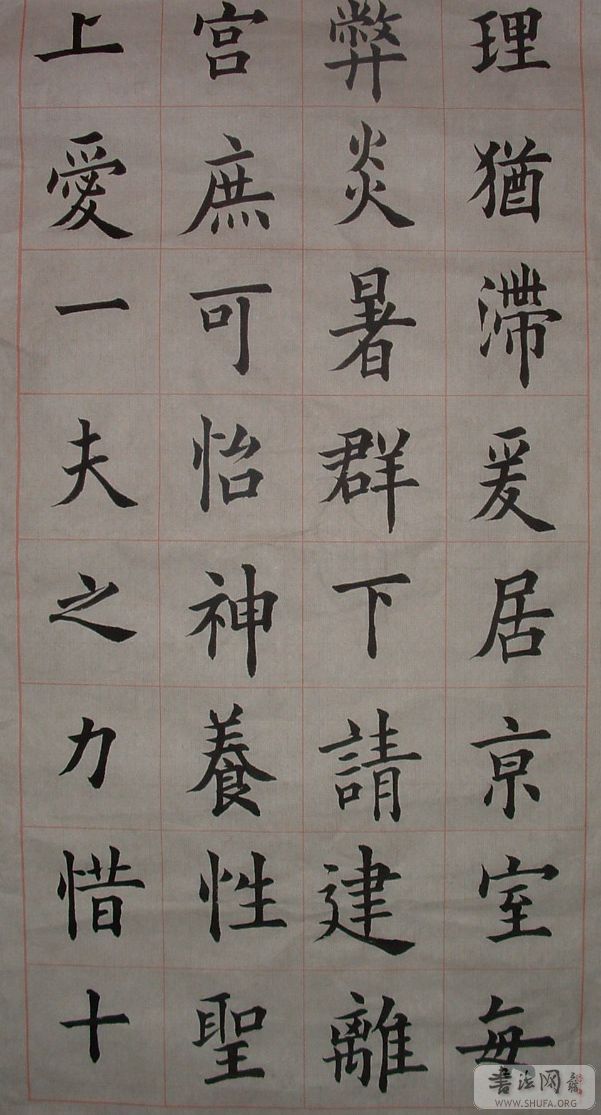 理猶滯爰居京室每
弊炎暑群下請建離
宮庶可怡神養性聖
上愛一夫之力惜十
书法网
WWW.SHUFA.ORG